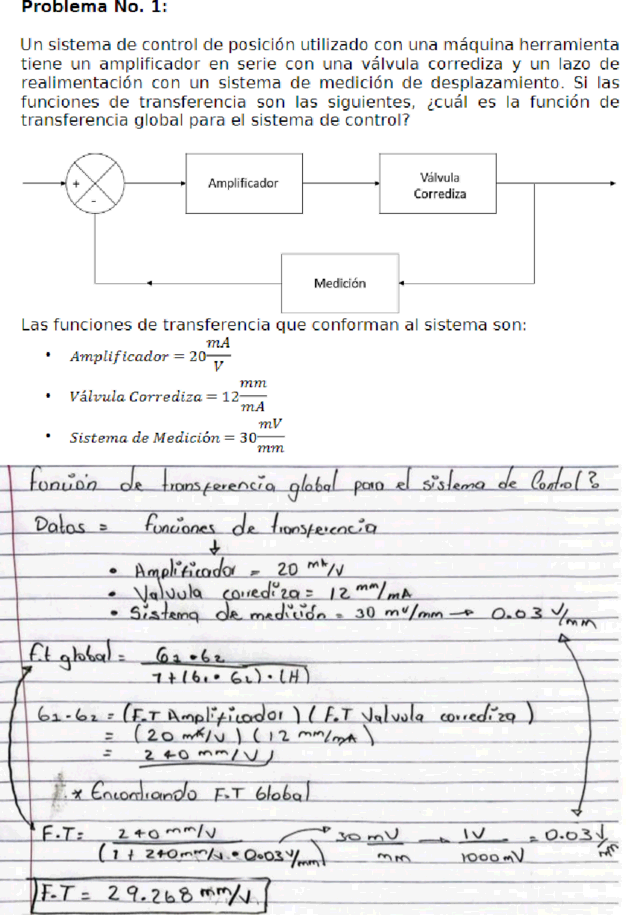 Problema No. 1:
Un sistema de control de posición utilizado con una máquina herramienta
tiene un amplificador en serie con una válvula corrediza y un lazo de
realimentación con un sistema de medición de desplazamiento. Si las
funciones de transferencia son las siguientes, ¿cuál es la función de
transferencia global para el sistema de control?
+
-
Amplificador
Válvula
Corrediza
Medición
Las funciones de transferencia que conforman al sistema son:
• Amplificador = 20 mA/V
• Válvula Corrediza = 12 mm/mA
• Sistema de Medición = 30 mV/mm
función de transferencia global para el sistema de Control?
Datos = funciones de transferencia
↓
• Amplificador = 20 mA/V
• Valvula corrediza = 12 mm/mA
• Sistema de medición = 30 mV/mm → 0.03 V/mm
f.t global = G1 • G2 / 1 + (G1 • G2) • (H)
G1 - G2 = (F.T Amplificador) (F.T Valvula corrediza)
= (20 mA/V) (12 mm/mA)
= 240 mm/V
* Encontrando F.T Global
F.T = 240 mm/V / (1 + 240 mm/V • 0.03 V/mm) → 30 mV/mm → 1V/1000 mV = 0.03 V/mm
F.T = 29.268 mm/V